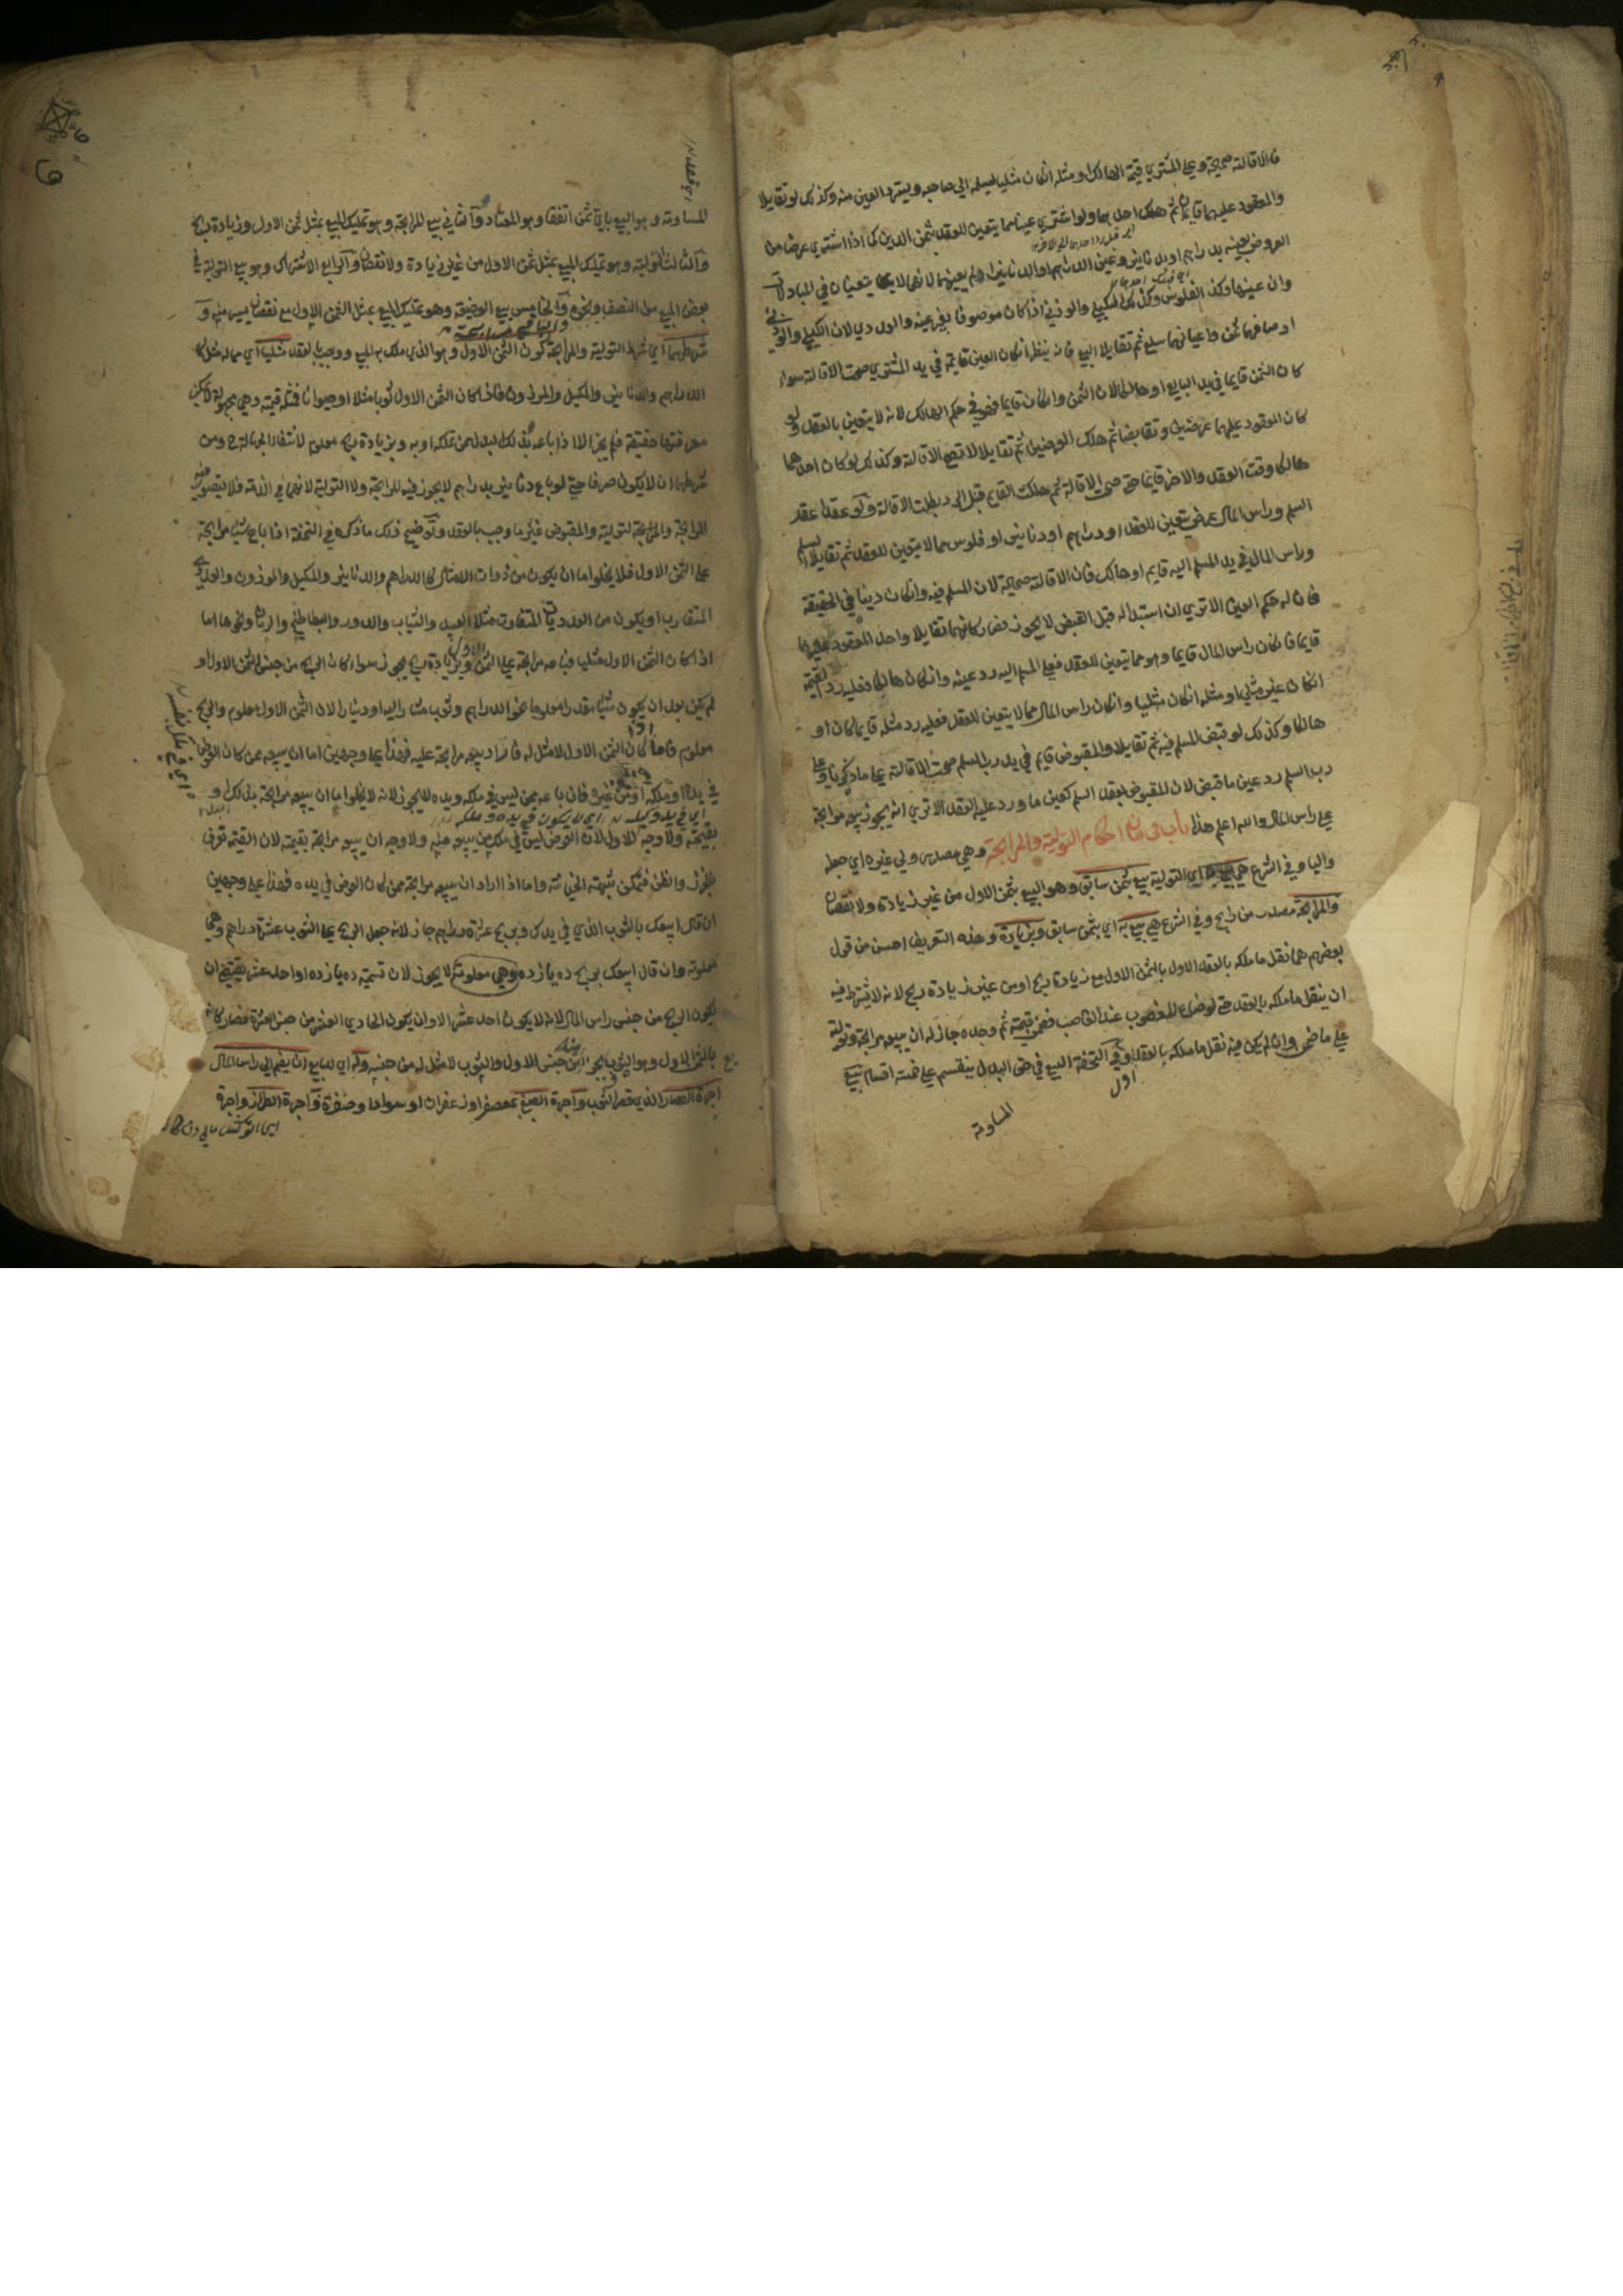 فالاقالة صحيحة وعلى المشتري قيمة الهالك او مثله ان كان مثليا فيسلمه الى صاحبه ويسترد العين منه وكذلك لو تقايلا
والمعقود عليهما قايمان ثم هلك احدهما ولو اشترى عينا مما يتعين للعقد بثمن الدين كما اذا اشترى عرضا من
العروض بعينه بدراهم او بدنانير وعين الدراهم او الدنانير او لم يعينهما لانهما لا يتعينان في المبادلات
وان عينها وكذا الفلوس وكذلك المكيلي والوزني اذا كان موصوفا بغير عينه والعددي لان الكيلي والوزني
اوصافهما ثمن واعيانهما سلع ثم تقايلا البيع فانه ينظر ان كان العين قايمة في يد المشتري صحت الاقالة سواء
كان الثمن قايما في يد البايع او هالكا لان الثمن وان كان قايما فهو في حكم الهالك لانه لا يتعين بالعقد ولو
كان المعقود عليهما عرضين وتقابضا ثم هلك العرضين ثم تقايلا لا تصح الاقالة وكذلك لو كان احدهما
هالكا وقت العقد والاخر قايما حتى صحت الاقالة ثم هلك القايم قبل الرد بطلت الاقالة ولو عقدا عقد
السلم وراس المال عرض يتعين للعقد او دراهم او دنانير او فلوس مما لا يتعين للعقد ثم تقايلا السلم
وراس المال في يد المسلم اليه قايم او هالك فان الاقالة صحيحة لان المسلم فيه وان كان دينا في الحقيقة
فان له حكم العين الا ترى ان استبداله قبل القبض لا يجوز فصار كانهما تقايلا واحد المعقود عليهما
قايما فان كان راس المال قايما وهو مما يتعين للعقد فعلى المسلم اليه رد عينه وان كان هالكا فعليه رد القيمة
ان كان غير مثلي او مثله ان كان مثليا وان كان راس المال مما لا يتعين للعقد فعليه رد مثله قايما كان او
هالكا وكذلك لو قبض المسلم فيه ثم تقايلا والمقبوض قايم في يد رب السلم صحت الاقالة على ما ذكرنا وعلى
رب السلم رد عين ما قبض لان المقبوض بعقد السلم كعين ما ورد عليه العقد الا ترى انه يجوز بيعه مرابحة
على راس المال والله اعلم هذا باب في بيان احكام التولية والمرابحة وهي مصدر ولي غيره اي جعله
واليا وفي الشرع هي اي التولية بيع بثمن سابق وهو البيع بثمن الاول من غير زيادة ولا نقصان
والمرابحة مصدر من رابح وفي الشرع هي بيع به اي بثمن سابق وبزيادة وهذه التعريف احسن من قول
بعضهم هما نقل ما ملكه بالعقد الاول بالثمن الاول مع زيادة ربح او من غير زيادة ربح لانه لا يشترط فيه
ان ينقل ما ملكه بالعقد حتى لو ضاع المغصوب عند الغاصب فضمن قيمته ثم وجده جاز له ان يبيعه مرابحة وتولية
على ما ضمن وان لم يكن فيه نقل ما ملكه بالعقد وفي التحفة البيع في حق البدل ينقسم على خمسة اقسام بيع
اول
المساومة
المساومة وهو البيع باي ثمن اتفقا وهو المعتاد والثاني بيع المرابحة وهو تمليك المبيع بمثل ثمن الاول وزيادة ربح
والثالث التولية وهو تمليك المبيع بمثل ثمن الاول من غير زيادة ولا نقصان والرابع الاشتراك وهو بيع التولية في
بعض المبيع من النصف ونحوه والخامس بيع الوضيعة وهو تمليك المبيع بمثل الثمن الاول مع نقصان يسير منه و
شرطهما اي شرط التولية والمرابحة كون الثمن الاول وهو الذي ملك به المبيع ووجب بالعقد مثليا اي مما له مثل كا
الدراهم والدنانير والمكيل والموزون فاذا كان الثمن الاول ثوبا مثلا او حيوانا فمثله قيمته وهي مجهولة لا يمكن
معرفتها حقيقة فلم يجز الا اذا باعه بذلك البدل ممن تملكه او به وبزيادة ربح معلوم لانتفاء الجهالة ح ومن
شرطهما ان لا يكون صرفا حتى لو باع دنانير بدراهم لا يجوز فيه المرابحة ولا التولية لانهما في الذمة فلا يتصور فيه
المرابحة والتولية والمقبوض غير ما وجب بالعقد وتوضيح ذلك ما ذكره في التحفة اذا باع شيئا مرابحة
على الثمن الاول فلا يخلو اما ان يكون من ذوات الامثال كالدراهم والدنانير والمكيل والموزون والعددي
المتقارب او يكون من العدديات المتفاوت مثل العبيد والثياب والدور والبطاطيخ والرمان ونحوها اما
اذا كان الثمن الاول مثليا فباعه مرابحة على الثمن الاول وبزيادة ربح يجوز سواء كان الربح من جنس الثمن الاول او
لم يكن بعد ان يكون شيئا مقدرا معلوما نحو الدراهم وثوب مشار اليه او دينار لان الثمن الاول معلوم والربح
معلوم فاما اذا كان الثمن الاول لا مثل له فاراد بيعه مرابحة عليه فهذا على وجهين اما ان يبيعه ممن كان العرض
في يده او ملكه او من غيره فان باعه ممن ليس في ملكه ويده لا يجوز لانه لا يخلو اما ان يبيعه مرابحة بذلك او
بقيمته ولا وجه للاول لان العرض ليس في ملك من يبيعه منه ولا وجه ان يبيعه مرابحة بقيمته لان القيمة تعرف
بالحزر والظن فتمكن شبهة الخيانة واما اذا اراد ان يبيعه مرابحة ممن كان العرض في يده فهذا على وجهين
ان قال ابيعك بالثوب الذي في يدك وبربح عشرة دراهم جاز لانه جعل الربح على الثوب عشرة دراهم وهي
معلومة وان قال ابيعك بربح ده يازده وهي معلومة لا يجوز لان تسمية ده يازده او احد عشر يقتضي ان
يكون الربح من جنس راس المال لانه لا يكون احد عشر الا وان يكون الحادي العشر من جنس العشرة فصار كانه
بالثمن الاول وهو الثوب من جنس الاول والثوب لا مثل له من جنسه وله اي للبايع ان يضم الى راس المال
اجرة القصار الذي قصر الثوب واجرة الصبغ بمعصفر او زعفران او سوادا وصفرة واجرة الطراز واجرة